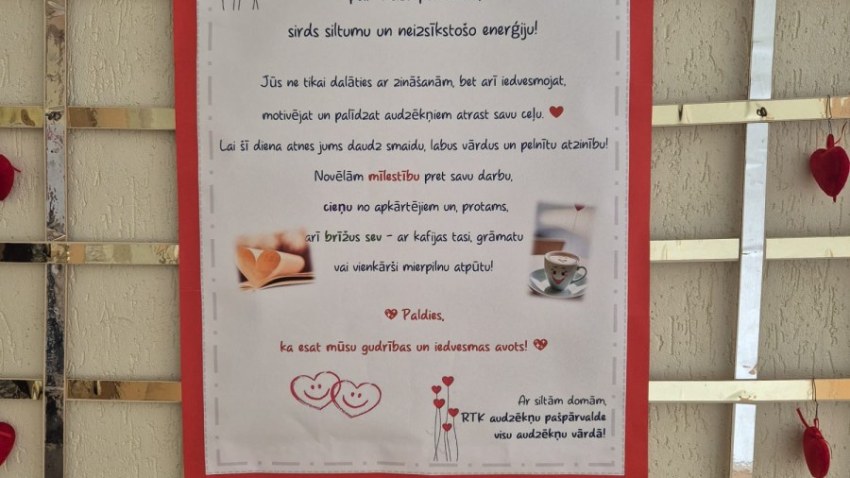 sirds siltumu un neizsīkstošo enerģiju!
Jūs ne tikai dalāties ar zināšanām, bet arī iedvesmojat,
motivējat un palīdzat audzēkņiem atrast savu ceļu. ❤
Lai šī diena atnes jums daudz smaidu, labus vārdus un pelnītu atzinību!
Novēlām mīlestību pret savu darbu,
cieņu no apkārtējiem un, protams,
arī brīžus sev - ar kafijas tasi, grāmatu
vai vienkārši mierpilnu atpūtu!
Paldies,
ka esat mūsu gudrības un iedvesmas avots!
Ar siltām domām,
RTK audzēkņu pašpārvalde
visu audzēkņu vārdā!